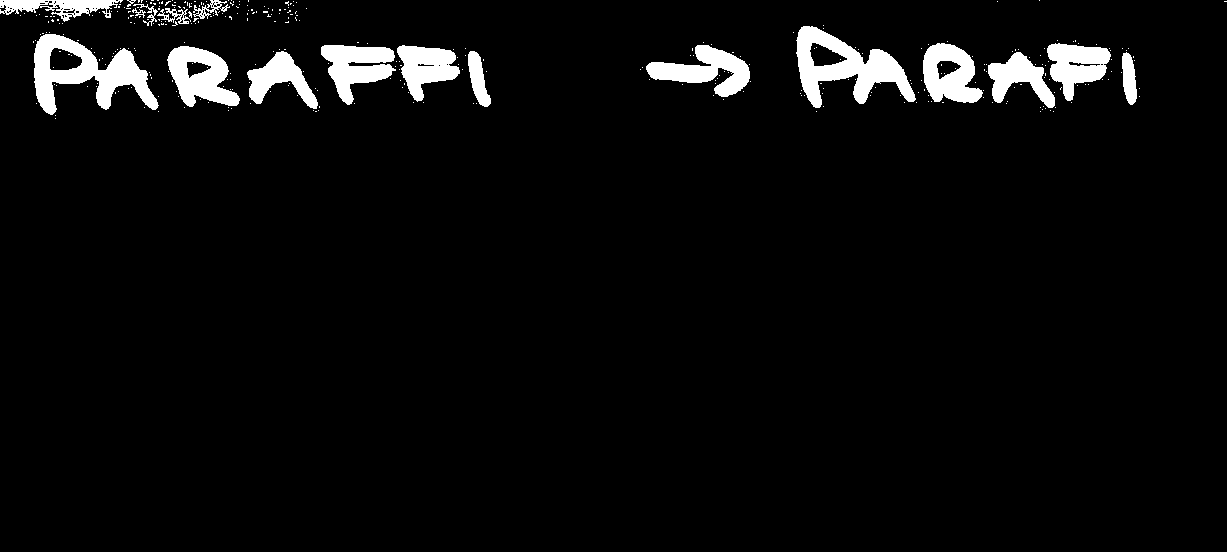 PARAFFI → PARAFI